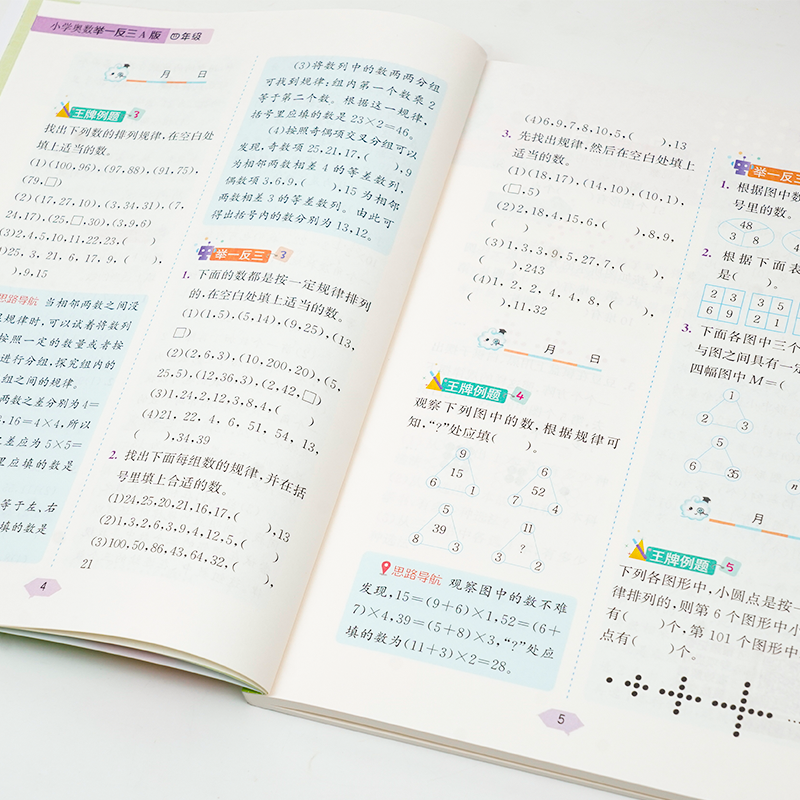 小学奥数举一反三A版 四年级
月 日
王牌例题 3
找出下列数的排列规律,在空白处
填上适当的数。
(1)(100,96),(97,88),(91,75),
(79,□)
(2)(17,27,10),(3,34,31),(7,
24,17),(25,□,30),(3,9,6)
(3)2,4,5,10,11,22,23,( )
25, 3, 21, 6, 17, 9, ( ),
),9,15
思路导航 当相邻两数之间没
规律时,可以试着将数列
按照一定的数量或者按
进行分组,探究组内的
组之间的规律。
两数之差分别为4=
,16=4×4,所以
差应为5×5=
里应填的数是
等于左、右
填的数是
(3)将数列中的数两两分组
可找到规律:组内第一个数乘2
等于第二个数。根据这一规律,
括号里应填的数是23×2=46。
(4)按照奇偶项交叉分组可以
发现,奇数项25,21,17,( ),9
为相邻两数相差4的等差数列,
偶数项3,6,9,( ),15为相邻
两数相差3的等差数列。由此可
得出括号内的数分别为13,12。
举一反三 3
1. 下面的数都是按一定规律排列
的,在空白处填上适当的数。
(1)(1,5),(5,14),(9,25),(13,
□)
(2)(2,6,3),(10,200,20),(5,
25,5),(12,36,3),(2,42,□)
(3)1,24,2,12,3,8,4,( )
(4)21, 22, 4, 6, 51, 54, 13,
( ),34,39
2. 找出下面每组数的规律,并在括
号里填上合适的数。
(1)24,25,20,21,16,17,( ),13
(2)1,3,2,6,3,9,4,12,5,( )
(3)100,50,86,43,64,32,( ),
21
4
(4)6,9,7,8,10,5,( ),13
3. 先找出规律,然后在空白处填上
适当的数。
(1)(18,17),(14,10),(10,1),
(□,5)
(2)2,18,4,15,6,( ),8,9,
( )
(3)1,3,3,9,5,27,7,( ),
( ),243
(4)1, 2, 2, 4, 4, 8, ( ),
( ),11,32
月 日
王牌例题 4
观察下列图中的数,根据规律可
知,“?”处应填( )。
9
15
6 1
6
52
7 4
5
39
8 3
11
?
3 2
思路导航 观察图中的数不难
发现,15=(9+6)×1,52=(6+
7)×4,39=(5+8)×3,“?”处应
填的数为(11+3)×2=28。
5
举一反三
1. 根据图中数
号里的数。
48
3 8
2. 根据下面表
是( )。
2 3
6 9
3 5
2 1
3. 下面各图中三个
与图之间具有一定
四幅图中M=(
1
2 3
5
6 35
月
王牌例题 5
下列各图形中,小圆点是按一
律排列的,则第6个图形中小
有( )个,第101个图形中
点有( )个。